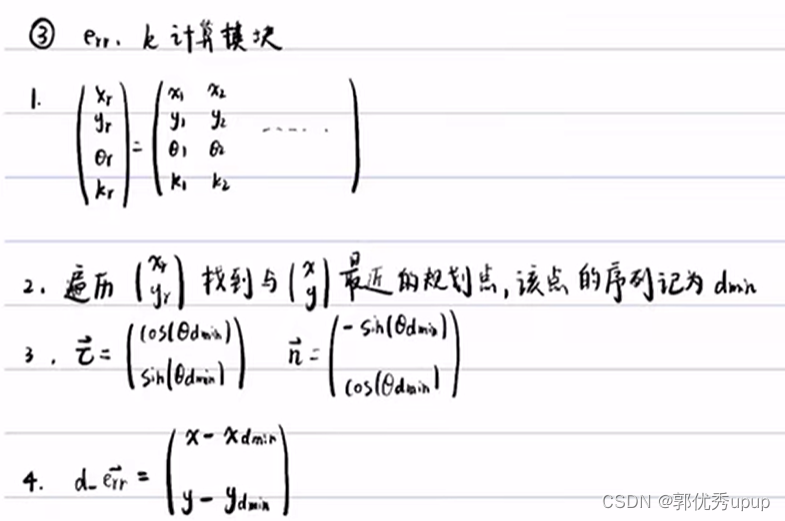 ③ err、k 计算模块
1. (xr yr θr kr) = (x1 x2 y1 y2 θ1 θ2 k1 k2 ......)
2. 遍历 (xr yr) 找到与 (x y) 最近的规划点, 该点的序列记为 dmin
3. τ⃗ = (cos(θdmin) sin(θdmin)) n⃗ = (-sin(θdmin) cos(θdmin)
4. d_err⃗ = (x - xdmin y - ydmin)
CSDN @郭优秀upup